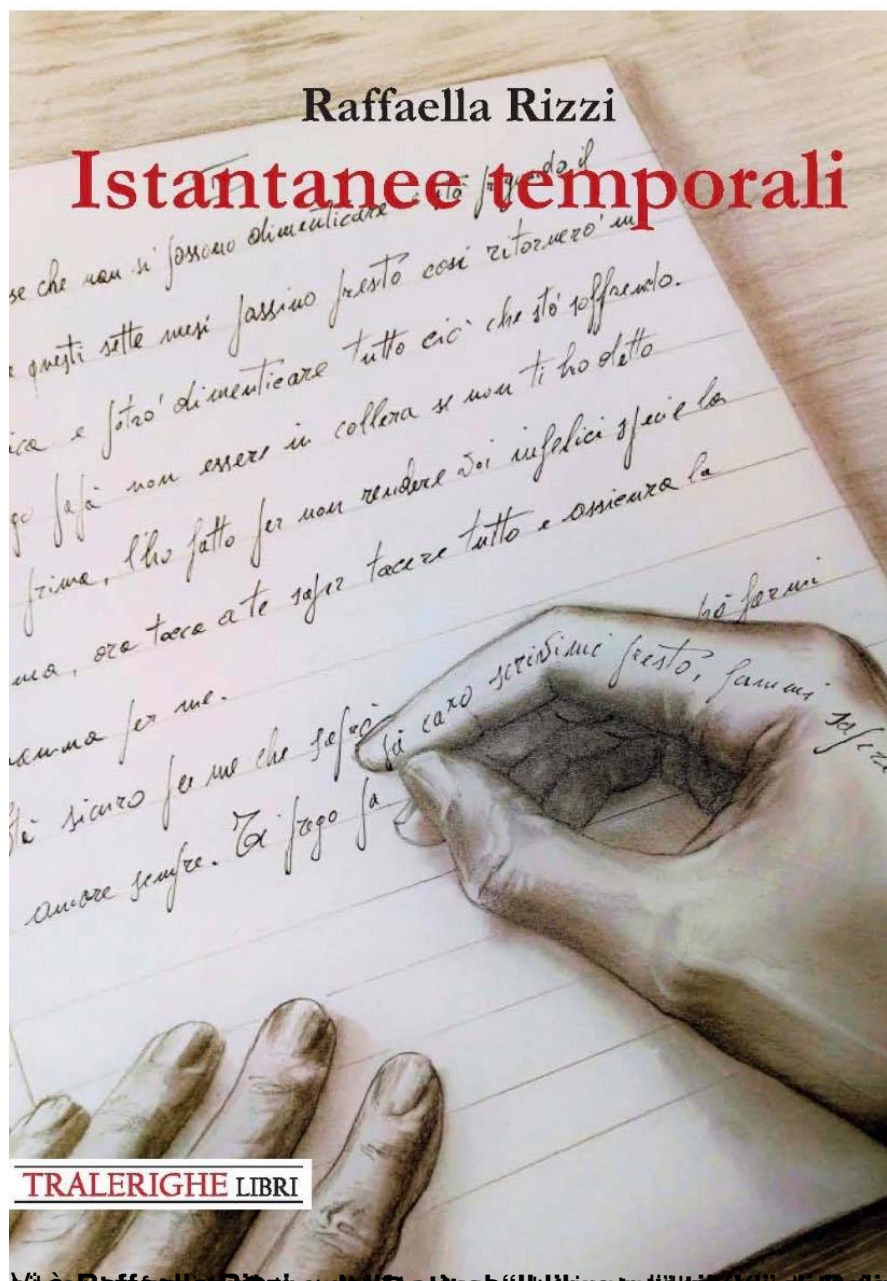 Raffaella Rizzi
Istantanee temporali
se che non si possono dimenticare
pregando il
questi sette mesi passino presto così ritornerò in
e potro' dimenticare tutto ciò che sto' soffrendo.
papà non essere in collera se non ti ho detto
prima, l'ho fatto per non rendere voi infelici specie la
ora tocca a te saper tacere tutto e assicura la
per me.
sicuro per me che saprò
pà caro scrivimi presto, fammi sapere
amore sempre. Ti prego pa
TRALERIGHE LIBRI